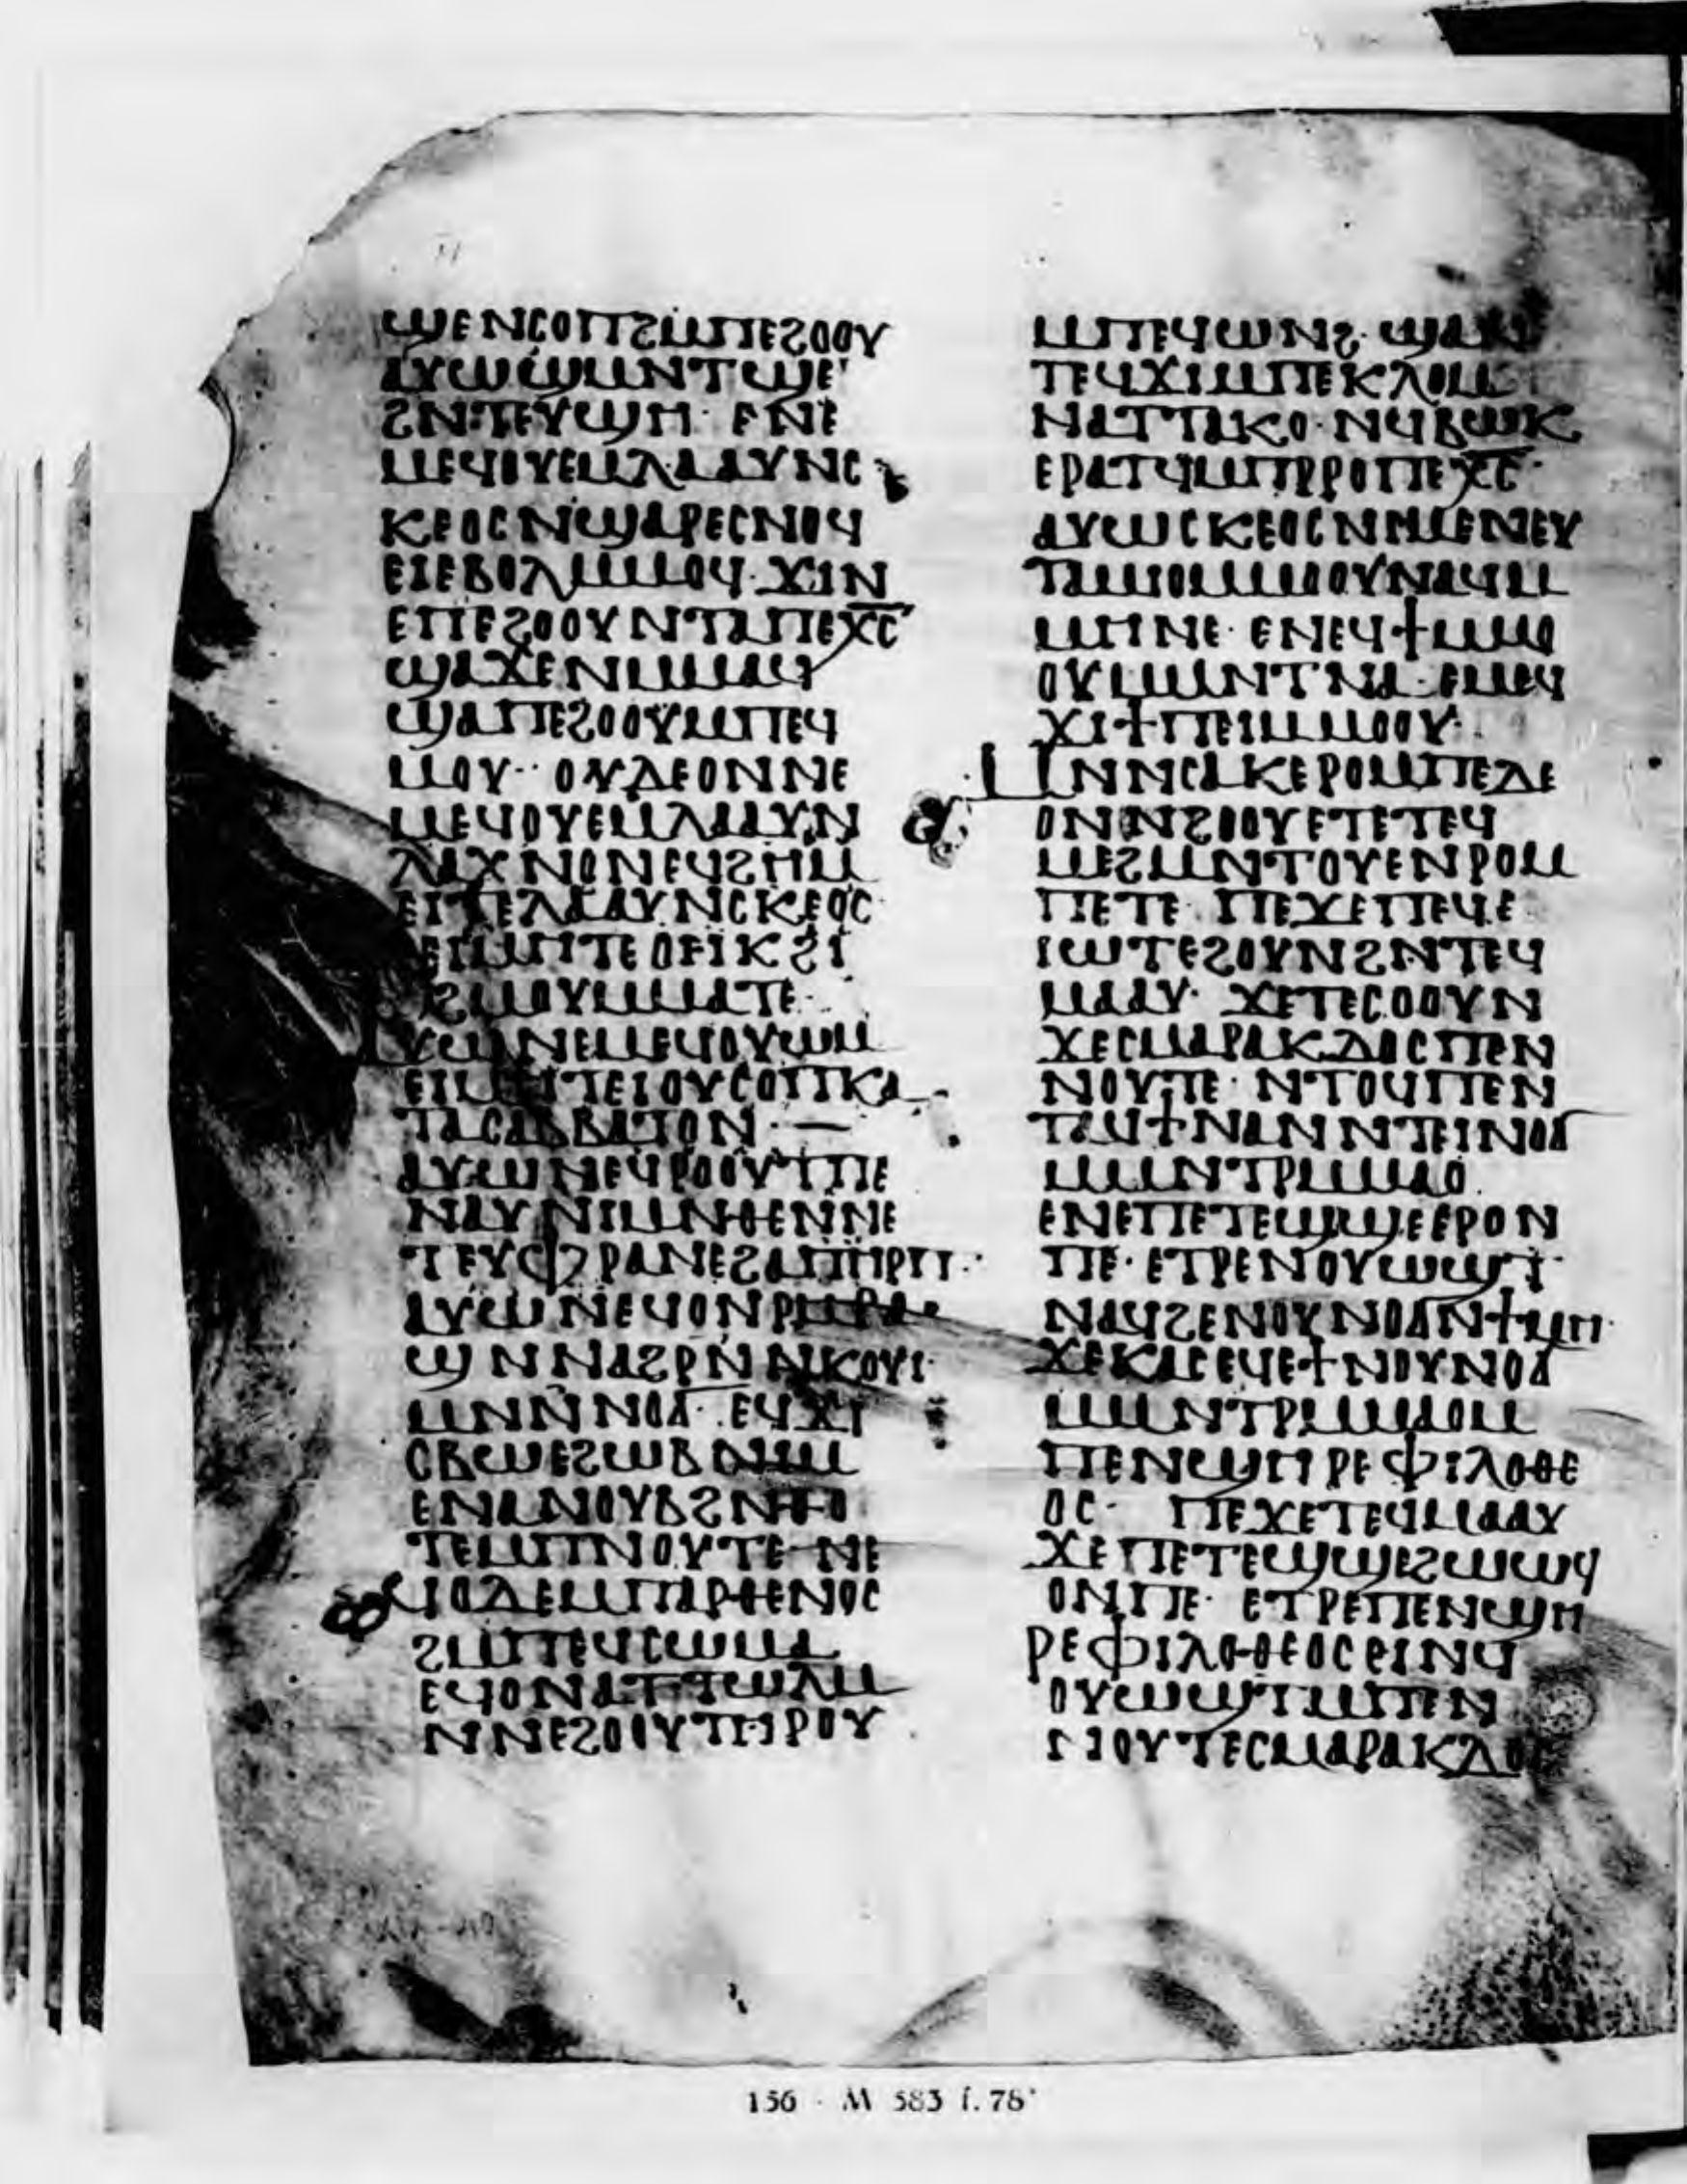 ϢⲈⲚⲤⲟⲡϨⲙⲡⲉϨⲟⲟⲩ
ⲁⲩⲱϣⲙⲛⲧϣⲉ
ϩⲛⲧⲉⲩϣⲏ· ⲉⲛⲉ
ⲙⲉϥⲟⲩⲉⲙⲗⲁⲁⲩⲛⲥ
ⲕⲉⲟⲥⲛϣⲁⲣⲉⲥⲛⲟϥ
ⲉⲓⲉⲃⲟⲗⲙⲙⲟϥ· ϫⲓⲛ
ⲉⲡⲉϩⲟⲟⲩⲛⲧⲁⲡⲉⲭ̅ⲥ̅
ϣⲁϫⲉⲛⲙⲙⲁϥ
ϣⲁⲡⲉϩⲟⲟⲩⲙⲡⲉϥ
ⲙⲟⲩ·· ⲟⲩⲇⲉⲟⲛⲛⲉ
ⲙⲉϥⲟⲩⲉⲙⲗⲁⲁⲩⲛ
ⲗⲁⲭⲛⲟⲛⲉϥϩⲏⲙ
ⲉⲓⲧⲉⲗⲁⲁⲩⲛⲥⲕⲉⲟⲥ
ⲉⲓⲙⲏⲧⲉⲟⲉⲓⲕϩⲓ
ϩⲙⲟⲩⲙⲙⲁⲧⲉ·
ⲁⲩⲱⲛⲉⲙⲉϥⲟⲩⲱⲙ
ⲉⲓⲙⲏⲧⲉⲓⲟⲩⲥⲟⲡⲕⲁ
ⲧⲁⲥⲁⲃⲃⲁⲧⲟⲛ·—
ⲁⲩⲱⲛⲉϥⲣⲟⲟⲩⲧⲡⲉ
ⲛⲁⲩⲛⲓⲙⲛⲑⲉⲛⲛⲉ
ⲧⲉⲩⲫⲣⲁⲛⲉϩⲁⲡⲏⲣⲡ·
ⲁⲩⲱⲛⲉϥⲟⲛⲣⲙⲣⲁ
ϣⲛⲛⲁϩⲣⲛⲛⲕⲟⲩⲓ
ⲙⲛⲛⲛⲟϭ· ⲉϥϫⲓ
ⲥⲃⲱⲉϩⲱⲃⲛⲓⲙ
ⲉⲛⲁⲛⲟⲩⲃϩⲛⲑⲟ
ⲧⲉⲙⲡⲛⲟⲩⲧⲉ ⲛⲉ
ϥⲟⲇⲉⲙⲡⲁⲣⲑⲉⲛⲟⲥ
ϩⲙⲡⲉϥⲥⲱⲙⲁ
ⲉϥⲟⲛⲁⲧⲧⲱⲗⲙ
ⲛⲛⲉϩⲟⲟⲩⲧⲏⲣⲟⲩ
ⲙⲡⲉϥⲱⲛϩ· ϣⲁⲛ
ⲧⲉϥϫⲓⲙⲡⲉⲕⲗⲟⲙ
ⲛⲁⲧⲧⲁⲕⲟ· ⲛϥⲃⲱⲕ
ⲉⲣⲁⲧϥⲙⲡⲣⲣⲟⲡⲉⲭ̅ⲥ̅·
ⲁⲩⲱⲥⲕⲉⲟⲥⲛⲓⲙⲉⲛⲉⲩ
ⲧⲁⲙⲓⲟⲙⲙⲟⲟⲩⲛⲁϥⲙ
ⲙⲏⲛⲉ· ⲉⲛⲉϥϯⲙⲙⲟ
ⲟⲩⲙⲙⲛⲧⲛⲁ· ⲉⲙⲉϥ
ϫⲓϯⲡⲉⲙⲙⲟⲟⲩ·
ⲙⲛⲛⲥⲁⲕⲉⲣⲟⲙⲡⲉⲇⲉ
ⲟⲛⲛϩⲟⲟⲩⲉⲧⲉⲧⲉϥ
ⲙⲉϩⲙⲛⲧⲟⲩⲉⲛⲣⲟⲙ
ⲡⲉⲧⲉ· ⲡⲉϫⲉⲡⲉϥⲉ
ⲓⲱⲧⲉϩⲟⲩⲛϩⲛⲧⲉϥ
ⲙⲁⲁⲩ· ϫⲉⲧⲉⲥⲟⲟⲩⲛ
ϫⲉⲥⲙⲁⲣⲁⲕⲇⲟⲥⲡⲉⲛ
ⲛⲟⲩⲧⲉ· ⲛⲧⲟϥⲡⲉⲛ
ⲧⲁϥϯⲛⲁⲛⲛⲧⲉⲓⲛⲟϭ
ⲙⲙⲛⲧⲣⲙⲙⲁⲟ
ⲉⲛⲉⲡⲉⲧⲉϣϣⲉⲉⲣⲟⲛ
ⲡⲉ· ⲉⲧⲣⲉⲛⲟⲩⲱϣⲧ
ⲛⲁϥϩⲉⲛⲟⲩⲛⲟϭⲛϯⲙⲏ·
ϫⲉⲕⲁⲥⲉϥⲉϯⲛⲟⲩⲛⲟϭ
ⲙⲙⲛⲧⲣⲙⲙⲁⲟⲙ
ⲡⲉⲛϣⲏⲣⲉⲫⲓⲗⲟⲑⲉ
ⲟⲥ· ⲡⲉϫⲉⲧⲉϥⲙⲁⲁⲩ
ϫⲉⲡⲉⲧⲉϣϣⲉϩⲱⲱϥ
ⲟⲛⲡⲉ· ⲉⲧⲣⲉⲡⲉⲛϣⲏ
ⲣⲉⲫⲓⲗⲟⲑⲉⲟⲥⲉⲓⲛϥ
ⲟⲩⲱϣⲧⲙⲡⲉⲛ
ⲛⲟⲩⲧⲉⲥⲙⲁⲣⲁⲕⲇⲟⲥ
156 · M 583 f. 78ᵛ